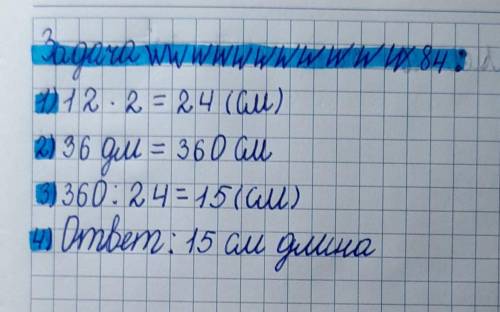 Задача 84:
1) 12 · 2 = 24 (см)
2) 36 дм = 360 см
3) 360 : 24 = 15 (см)
4) Ответ: 15 см длина